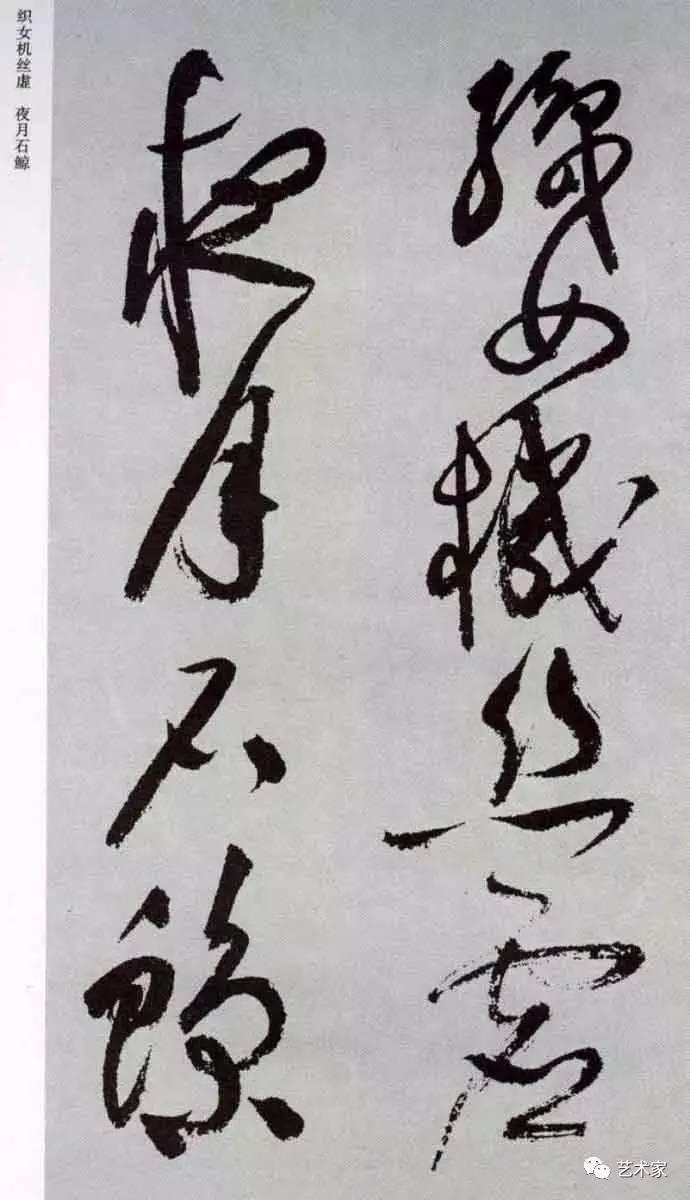 织女机丝虚 夜月石鲸
織女機丝虚
夜月石鯨
艺术家